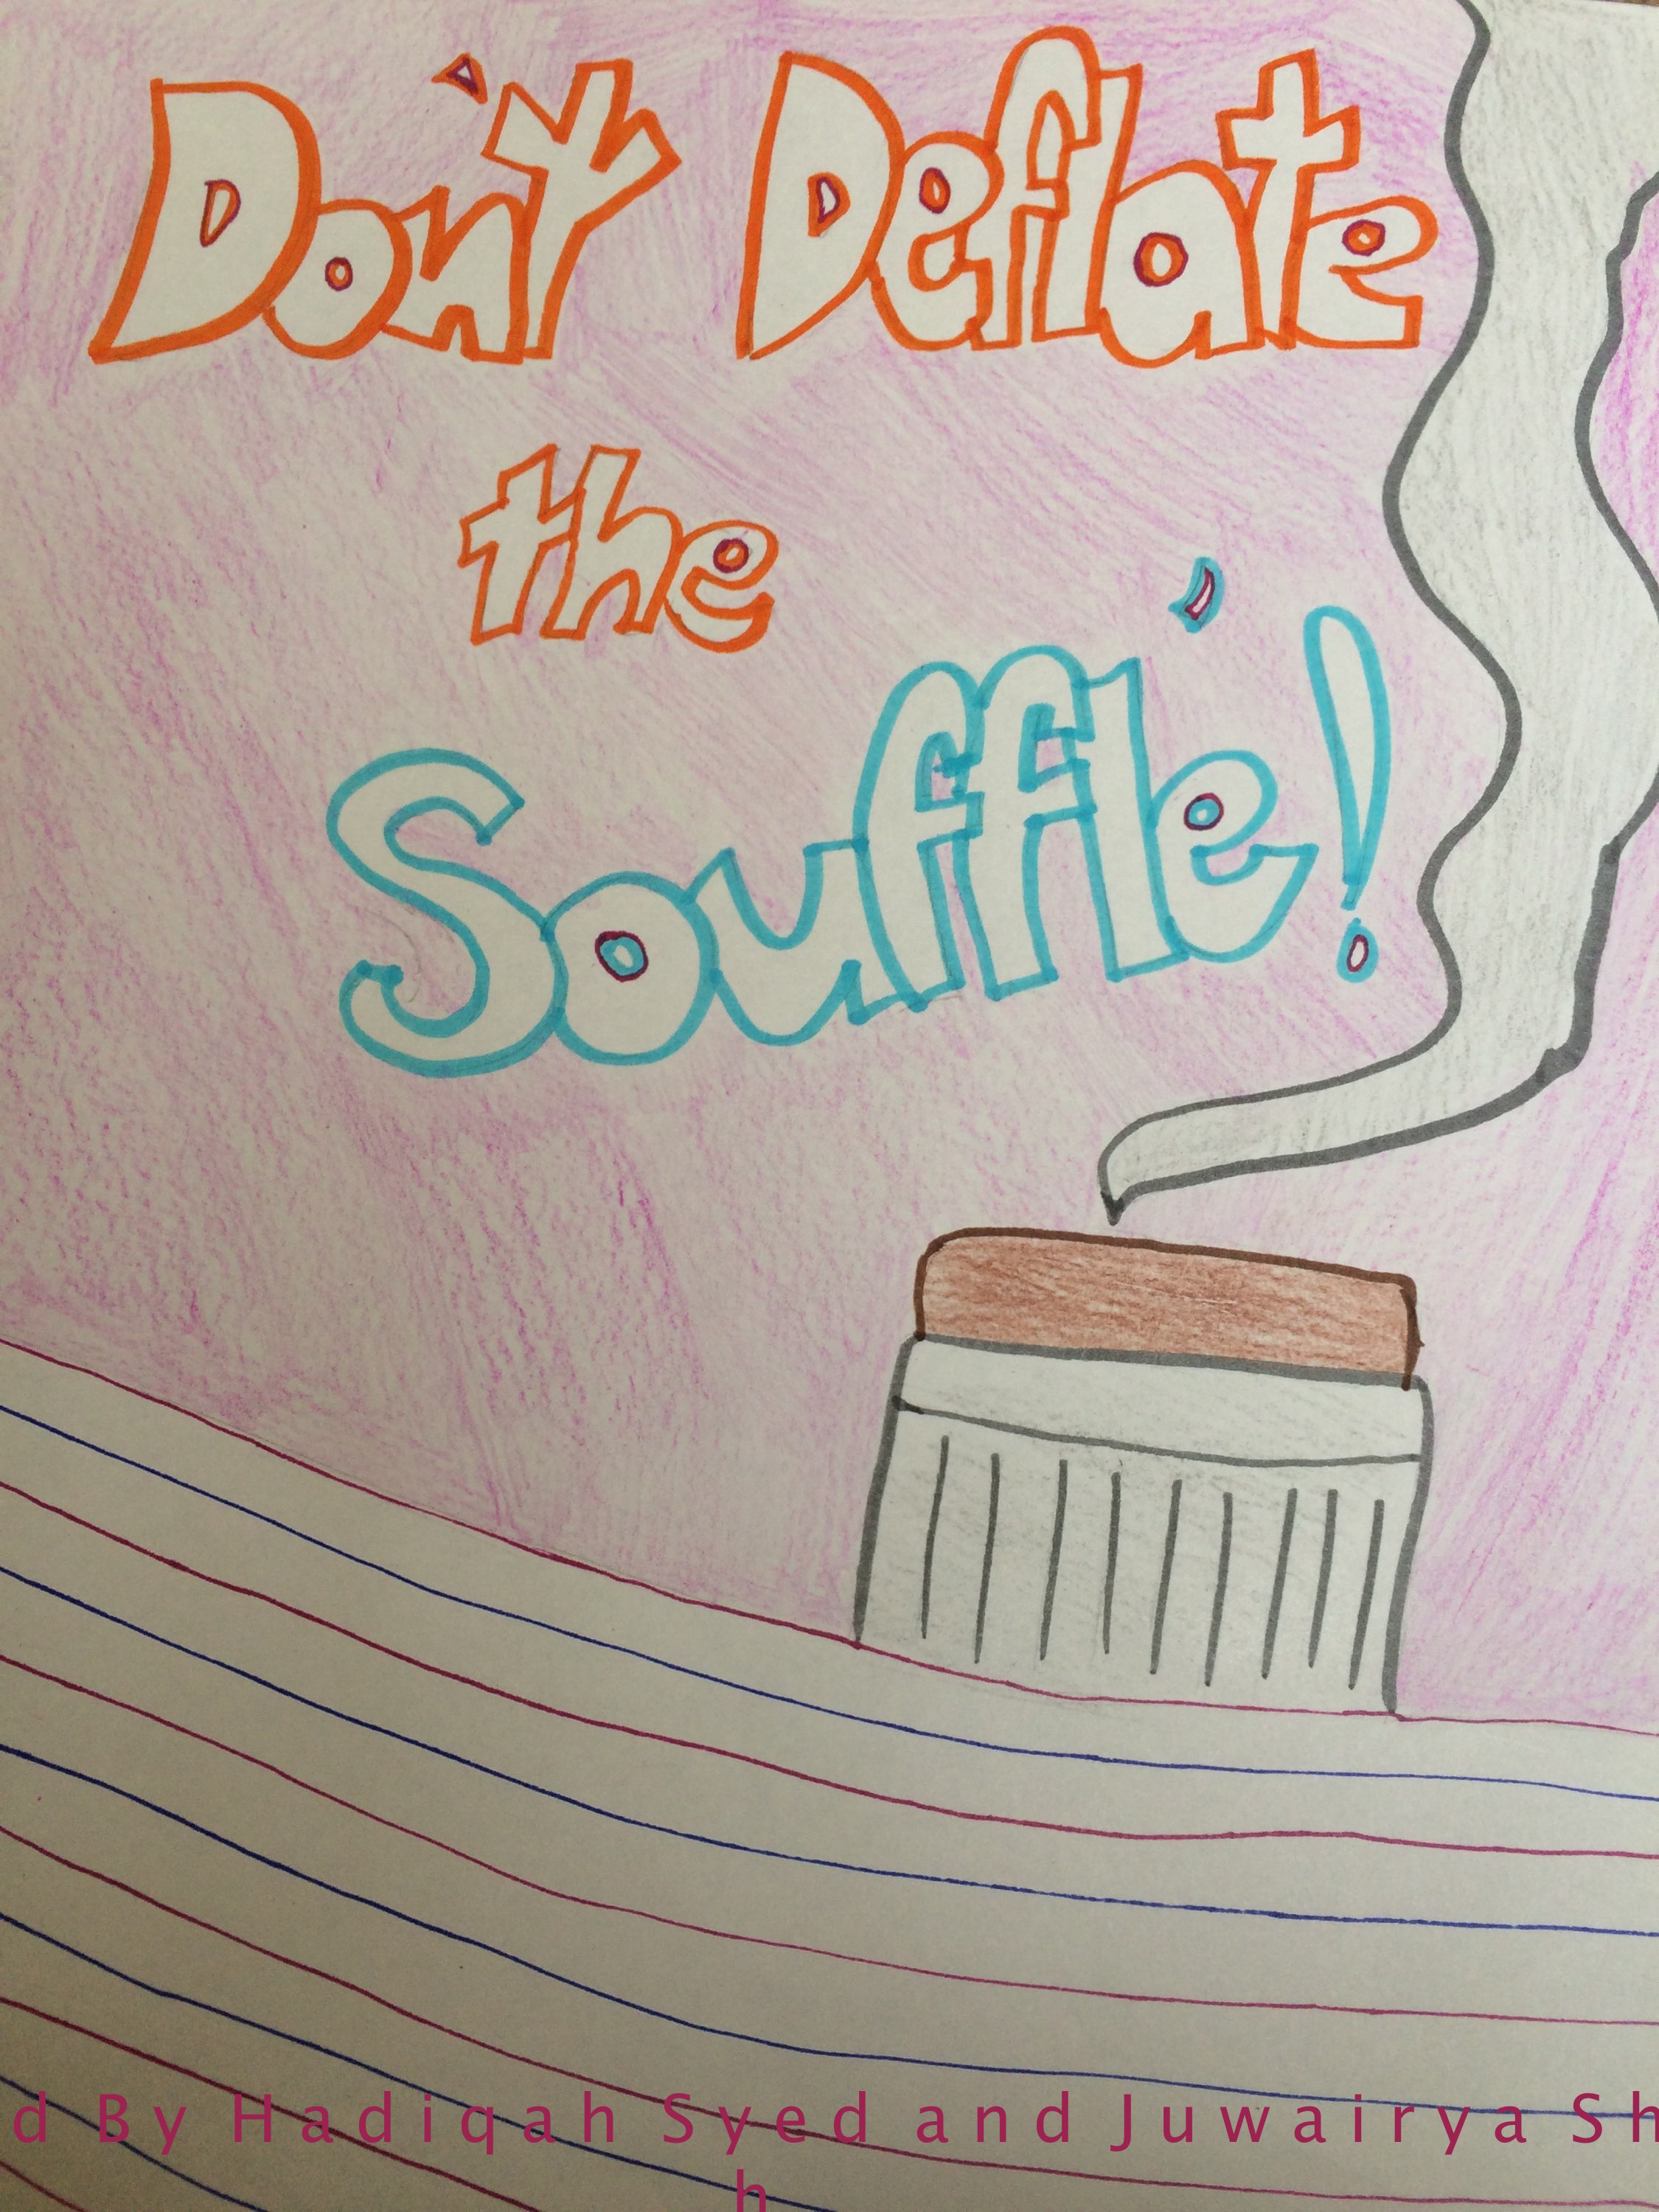 Don't Deflate
the
Souffle'!
d By Hadiqah Syed and Juwairya Sh
h